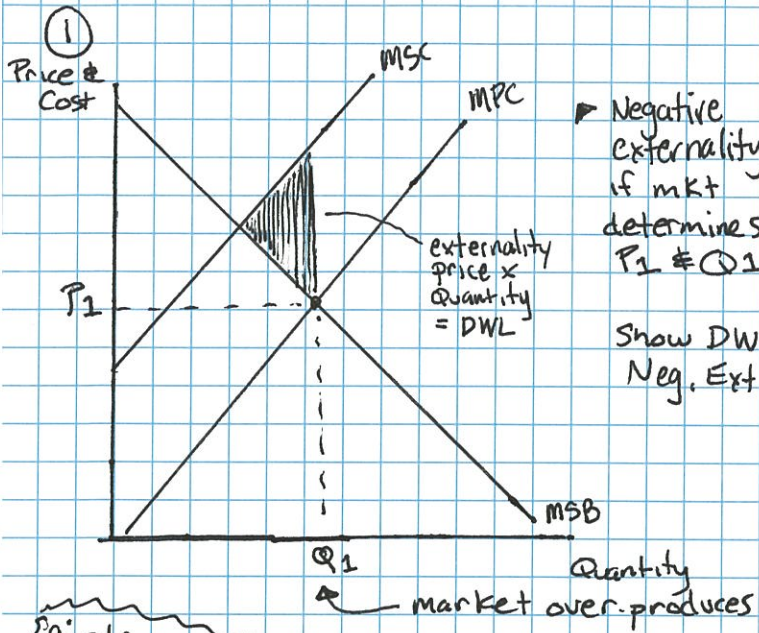 1
Price &
Cost
MSC
MPC
► Negative
externality
if mkt
determines
P1 & Q1
externality
price x
Quantity
= DWL
P1
Show DW
Neg. Ext
MSB
Q1
Quantity
market over-produces